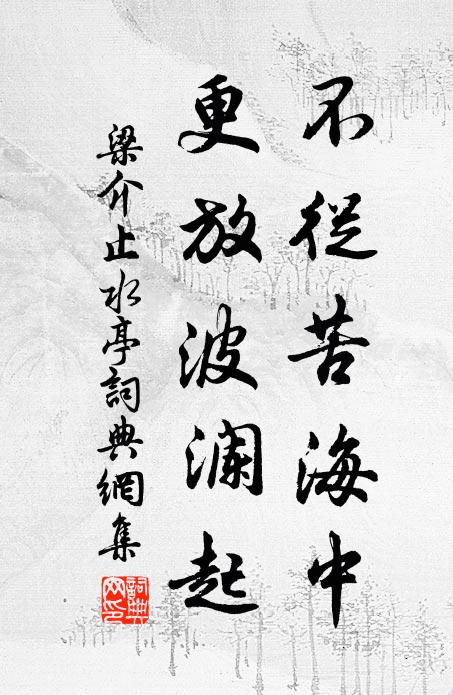 不從苦海中
更放波澜起
梁介止水亭詞典網集
詞典網印